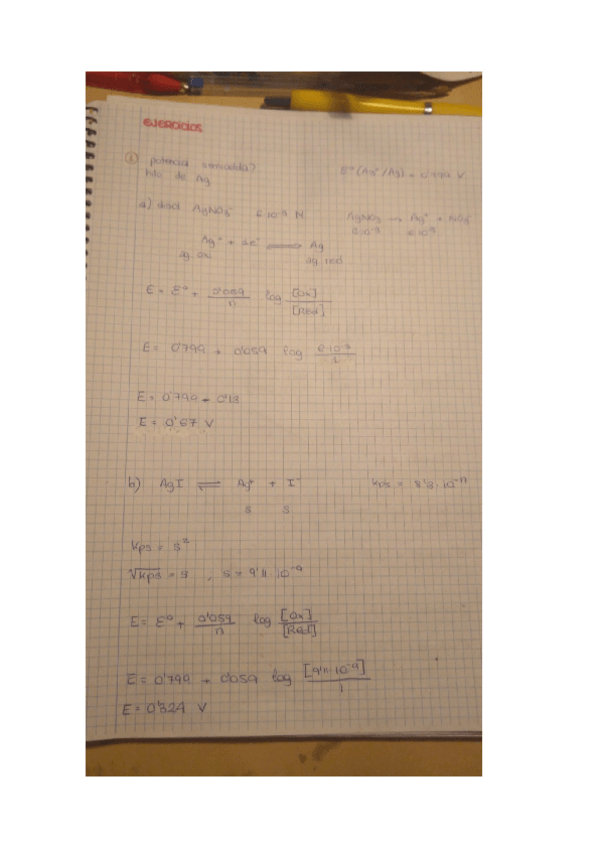 EJERCICIOS
① potencial semicelda? E⁰ (Ag⁺/Ag) = 0'799 V
hilo de Ag
a) disol AgNO₃ 6·10⁻³ N AgNO₃ → Ag⁺ + NO₃⁻
6·10⁻³ 6·10⁻³
Ag⁺ + 1e⁻ ⇌ Ag
ag. oxi ag. red
E = E⁰ + 0'059/n log [Ox]/[Red]
E = 0'799 + 0'059 log 6·10⁻³/1
E = 0'799 - 0'13
E = 0'67 V
b) AgI ⇌ Ag⁺ + I⁻ Kps = 8'3·10⁻¹⁷
s s
Kps = s²
√Kps = s , s = 9'11·10⁻⁹
E = E⁰ + 0'059/n log [Ox]/[Red]
E = 0'799 + 0'059 log [9'11·10⁻⁹]/1
E = 0'324 V